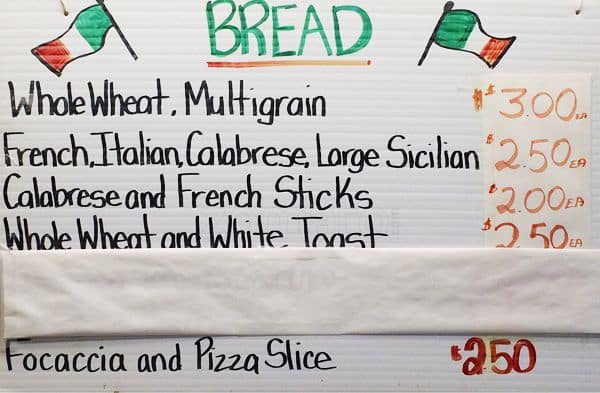 BREAD
Whole Wheat, Multigrain $3.00 EA
French, Italian, Calabrese, Large Sicilian $2.50 EA
Calabrese and French Sticks $2.00 EA
Whole Wheat and White Toast $2.50 EA
Focaccia and Pizza Slice $2.50